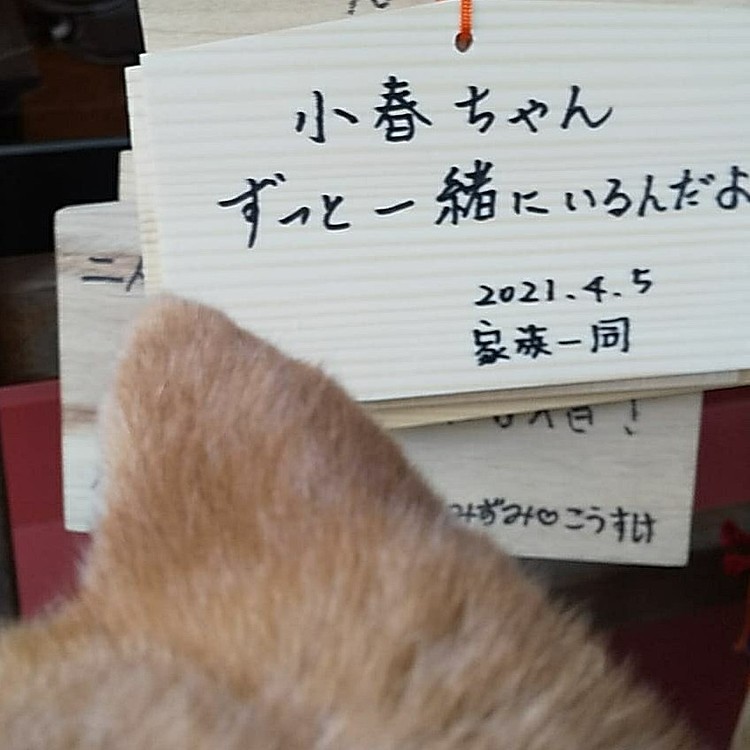 小春ちゃん
ずっと一緒にいるんだよ
2021.4.5
家族一同
みずみ♡こうすけ